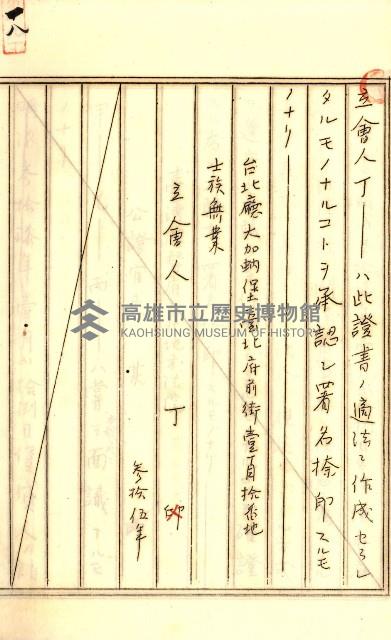 一八
立會人丁——ハ此證書ノ適法ニ作成セラレ
タルモノナルコトヲ承認シ署名捺印スルモ
ノナリ——
台北廳大加蚋堡臺北府前街壹丁目拾番地
士族無業
立會人 丁 印
參拾五年
高雄市立歷史博物館
KAOHSIUNG MUSEUM OF HISTORY